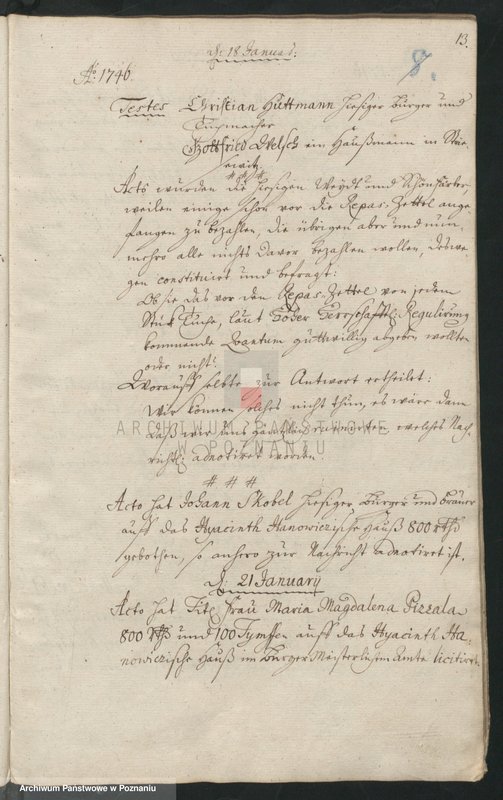 13.
8.
d. 18 Januarÿ:
Ao: 1746.
Testes Christian Hüttmann hiesiger Bürger und
Tuchmacher
Gottfried Welsch ein Haußmann in
# # #
Acto wurden die hiesigen Weydt und Schönfärber,
weilen einige schon vor die Repas: Zettel ange
fangen zu bezahlen, die übrigen aber und nun
mehro alle nichts davor bezahlen wollen, deswe
gen constituirt und befragt:
Ob sie das vor den Repas: Zettel von jedem
Stück Tuche, laut Hoher Herrschafftl: Regulirung
kommende Quantum gutwillig abgeben wollten
oder nicht?
Worauff selbte zur Antwort ertheilet:
Wir können solches nicht thun, es wäre dann
daß wir uns welches Nach
richtl: adnotiret worden.
# # #
Acto hat Johann Skobel hiesiger Bürger und Brauer
auff das Hyacinth Hanowiczische Hauß 800 rth
gebothen, so anhero zur Nachricht adnotiret ist.
d. 21 January
Acto hat Tit: Frau Maria Magdalena Pizzala
800 und 100 Tymffen auff das Hyacinth Ha-
nowiczische Hauß im Bürger Meisterlichen Amte licitiret.
ARCHIWUM PAŃSTWOWE
W POZNANIU
Archiwum Państwowe w Poznaniu